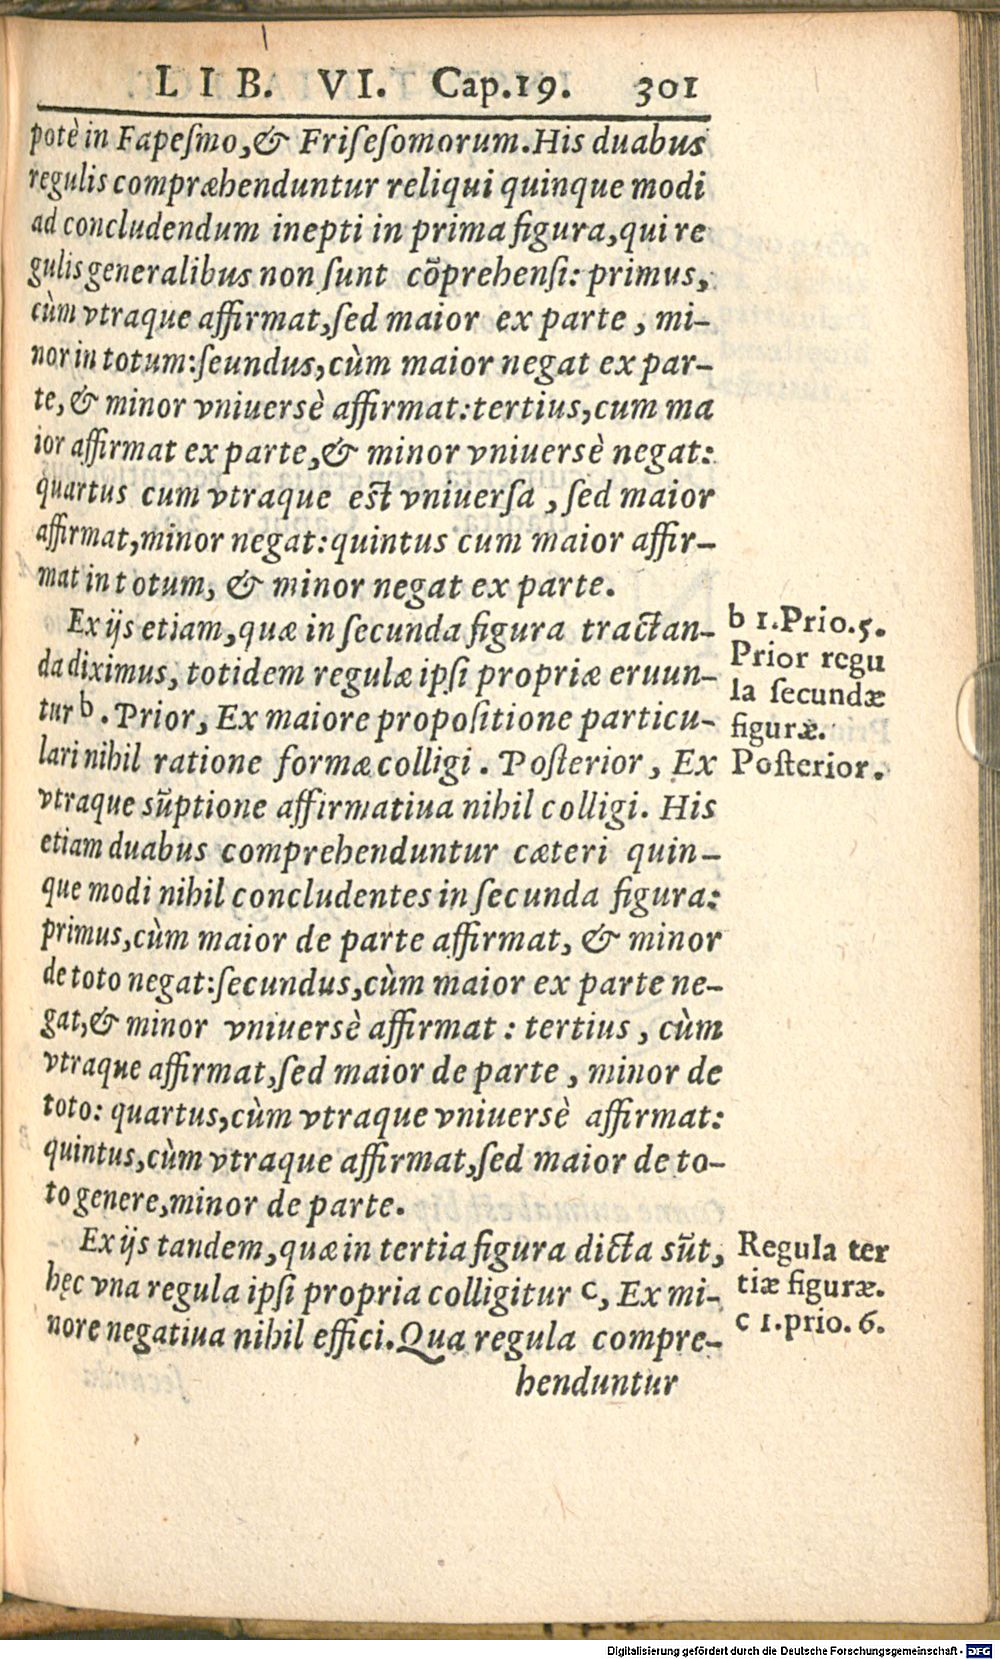 LIB. VI. Cap.19. 301
potè in Fapeſmo, & Friſeſomorum. His duabus
regulis compræhenduntur reliqui quinque modi
ad concludendum inepti in prima figura, qui re
gulis generalibus non ſunt cõprehenſi: primus,
cùm vtraque affirmat, ſed maior ex parte, mi-
nor in totum: ſeundus, cùm maior negat ex par-
te, & minor vniuersè affirmat: tertius, cum ma
ior affirmat ex parte, & minor vniuersè negat:
quartus cum vtraque est vniuerſa, ſed maior
affirmat, minor negat: quintus cum maior affir-
mat in totum, & minor negat ex parte.
Ex ijs etiam, quæ in ſecunda figura tractan-
da diximus, totidem regulæ ipſi propriæ eruun-
tur b. Prior, Ex maiore propoſitione particu-
lari nihil ratione formæ colligi. Poſterior, Ex
vtraque sũptione affirmatiua nihil colligi. His
etiam duabus comprehenduntur cæteri quin-
que modi nihil concludentes in ſecunda figura:
primus, cùm maior de parte affirmat, & minor
de toto negat: ſecundus, cùm maior ex parte ne-
gat, & minor vniuersè affirmat: tertius, cùm
vtraque affirmat, ſed maior de parte, minor de
toto: quartus, cùm vtraque vniuersè affirmat:
quintus, cùm vtraque affirmat, ſed maior de to-
to genere, minor de parte.
Ex ijs tandem, quæ in tertia figura dicta sũt,
hęc vna regula ipſi propria colligitur c, Ex mi-
nore negatiua nihil effici. Qua regula compre-
henduntur
b 1.Prio.5.
Prior regu
la ſecundæ
figuræ.
Poſterior.
Regula ter
tiæ figuræ.
c 1.prio.6.
Digitalisierung gefördert durch die Deutsche Forschungsgemeinschaft - DFG